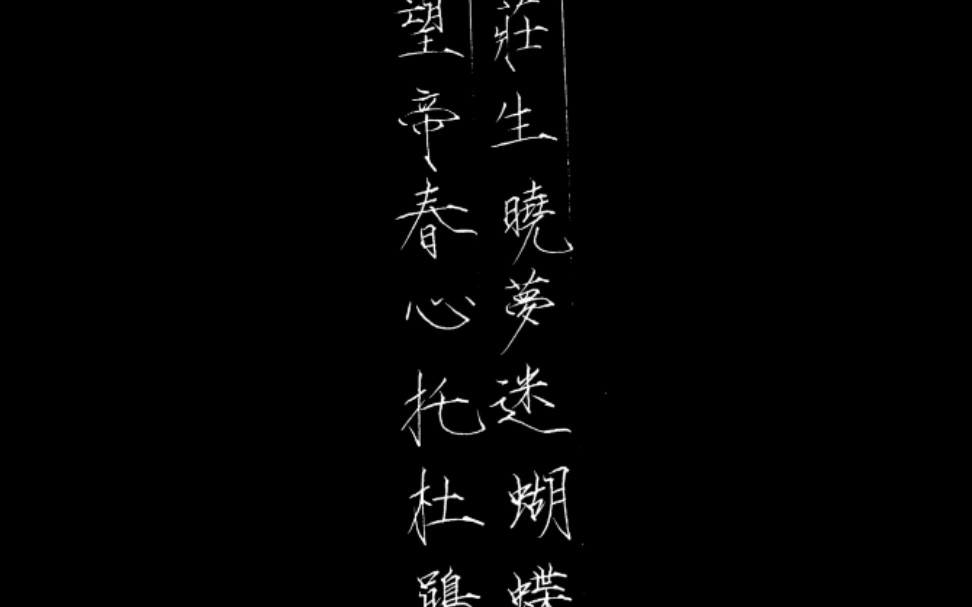 莊生曉夢迷蝴蝶
望帝春心托杜鵑